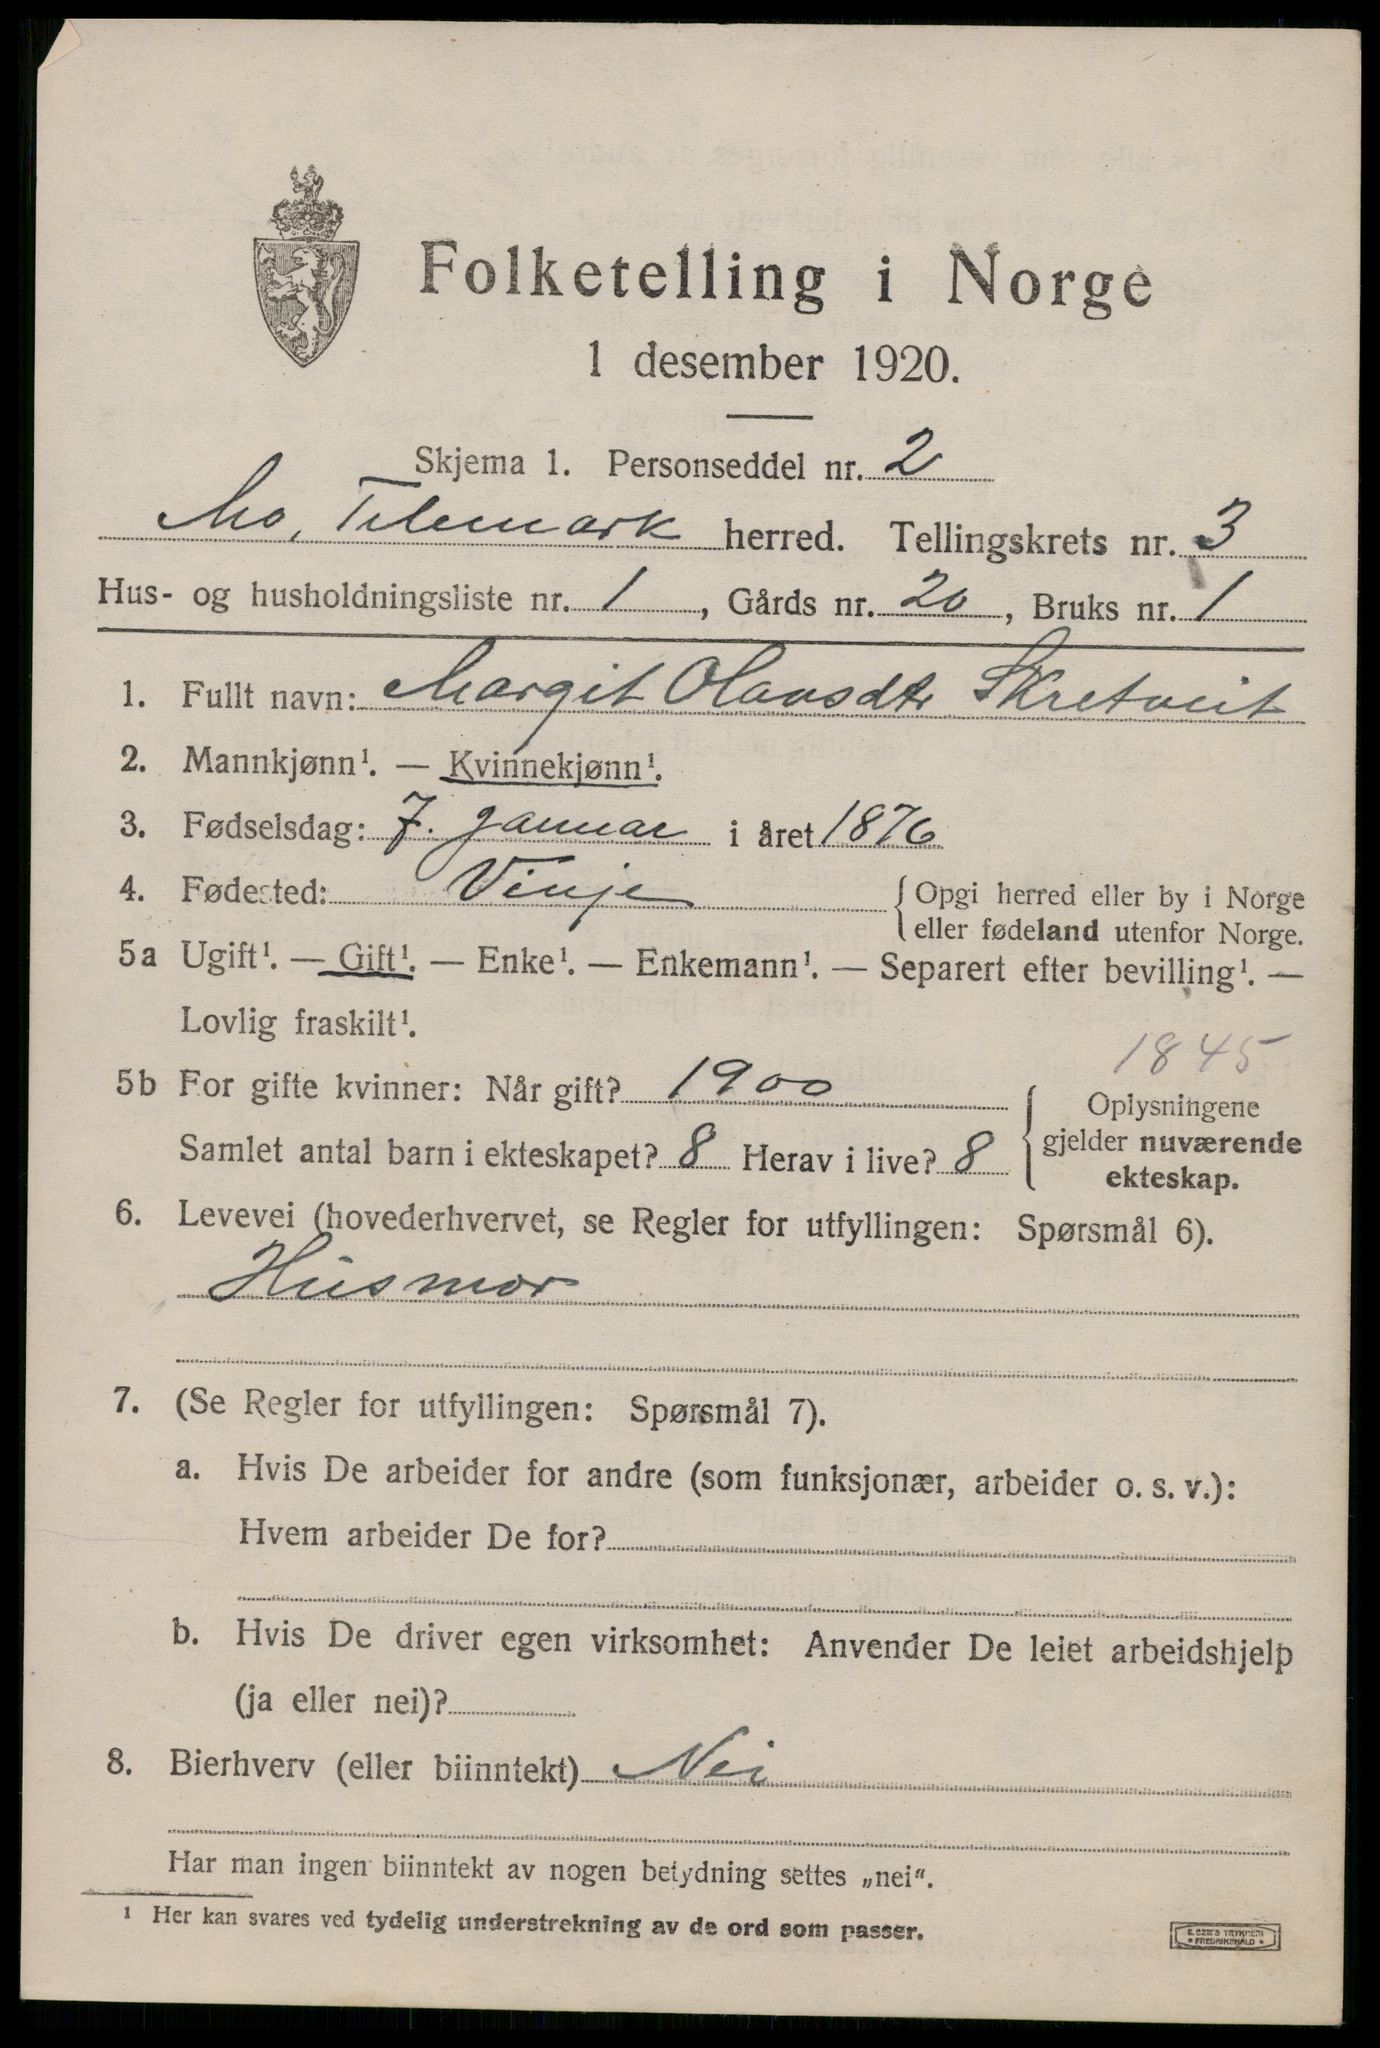 Folketelling i Norge
1 desember 1920.
Skjema 1. Personseddel nr. 2
Mo, Telemark herred. Tellingskrets nr. 3
Hus- og husholdningsliste nr. 1, Gårds nr. 20, Bruks nr. 1
1. Fullt navn: Margit Olavsdtr Skretveit
2. Mannkjønn¹. — Kvinnekjønn¹.
3. Fødselsdag: 7. januar i året 1876
4. Fødested: Vinje {Opgi herred eller by i Norge
eller fødeland utenfor Norge.
5a Ugift¹. — Gift¹. — Enke¹. — Enkemann¹. — Separert efter bevilling¹. —
Lovlig fraskilt¹.
1845
5b For gifte kvinner: Når gift? 1900
Samlet antal barn i ekteskapet? 8 Herav i live? 8
Oplysningene
gjelder nuværende
ekteskap.
6. Levevei (hovederhvervet, se Regler for utfyllingen: Spørsmål 6).
Husmor
7. (Se Regler for utfyllingen: Spørsmål 7).
a. Hvis De arbeider for andre (som funksjonær, arbeider o. s. v.):
Hvem arbeider De for?
b. Hvis De driver egen virksomhet: Anvender De leiet arbeidshjelp
(ja eller nei)?
8. Bierhverv (eller biinntekt) Nei
Har man ingen biinntekt av nogen betydning settes „nei“.
¹ Her kan svares ved tydelig understrekning av de ord som passer.
E. SEM'S TRYKKERI
FREDRIKSHALD